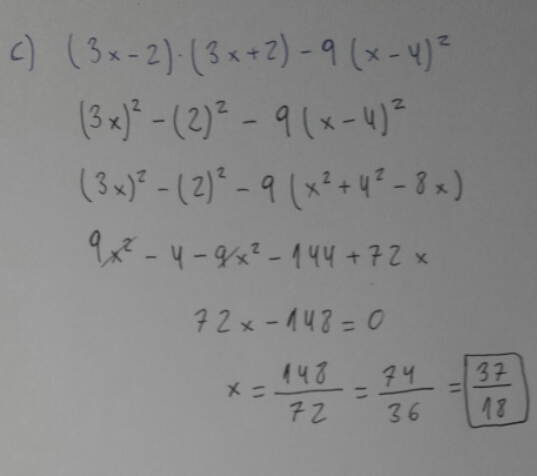 c) (3x-2)·(3x+2) - 9(x-4)²
(3x)² - (2)² - 9(x-4)²
(3x)² - (2)² - 9(x² + 4² - 8x)
9x² - 4 - 9x² - 144 + 72x
72x - 148 = 0
x = 148/72 = 74/36 = 37/18